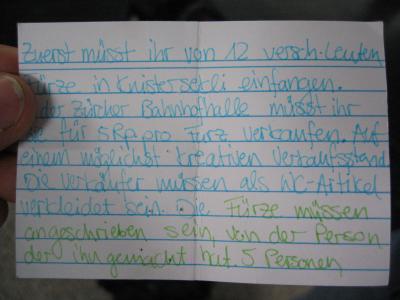 Zuerst müsst ihr von 12 versch. Leuten
Fürze in Knistersekli einfangen.
der Zürcher Bahnhofhalle müsst ihr
für 5 Rp. pro Furz verkaufen. Auf
einem möglichst kreativen Verkaufsstand
Die Verkäufer müssen als WC-Artikel
verkleidet sein. Die Fürze müssen
angeschrieben sein von der Person
der ihn gemacht hat. 5 Personen